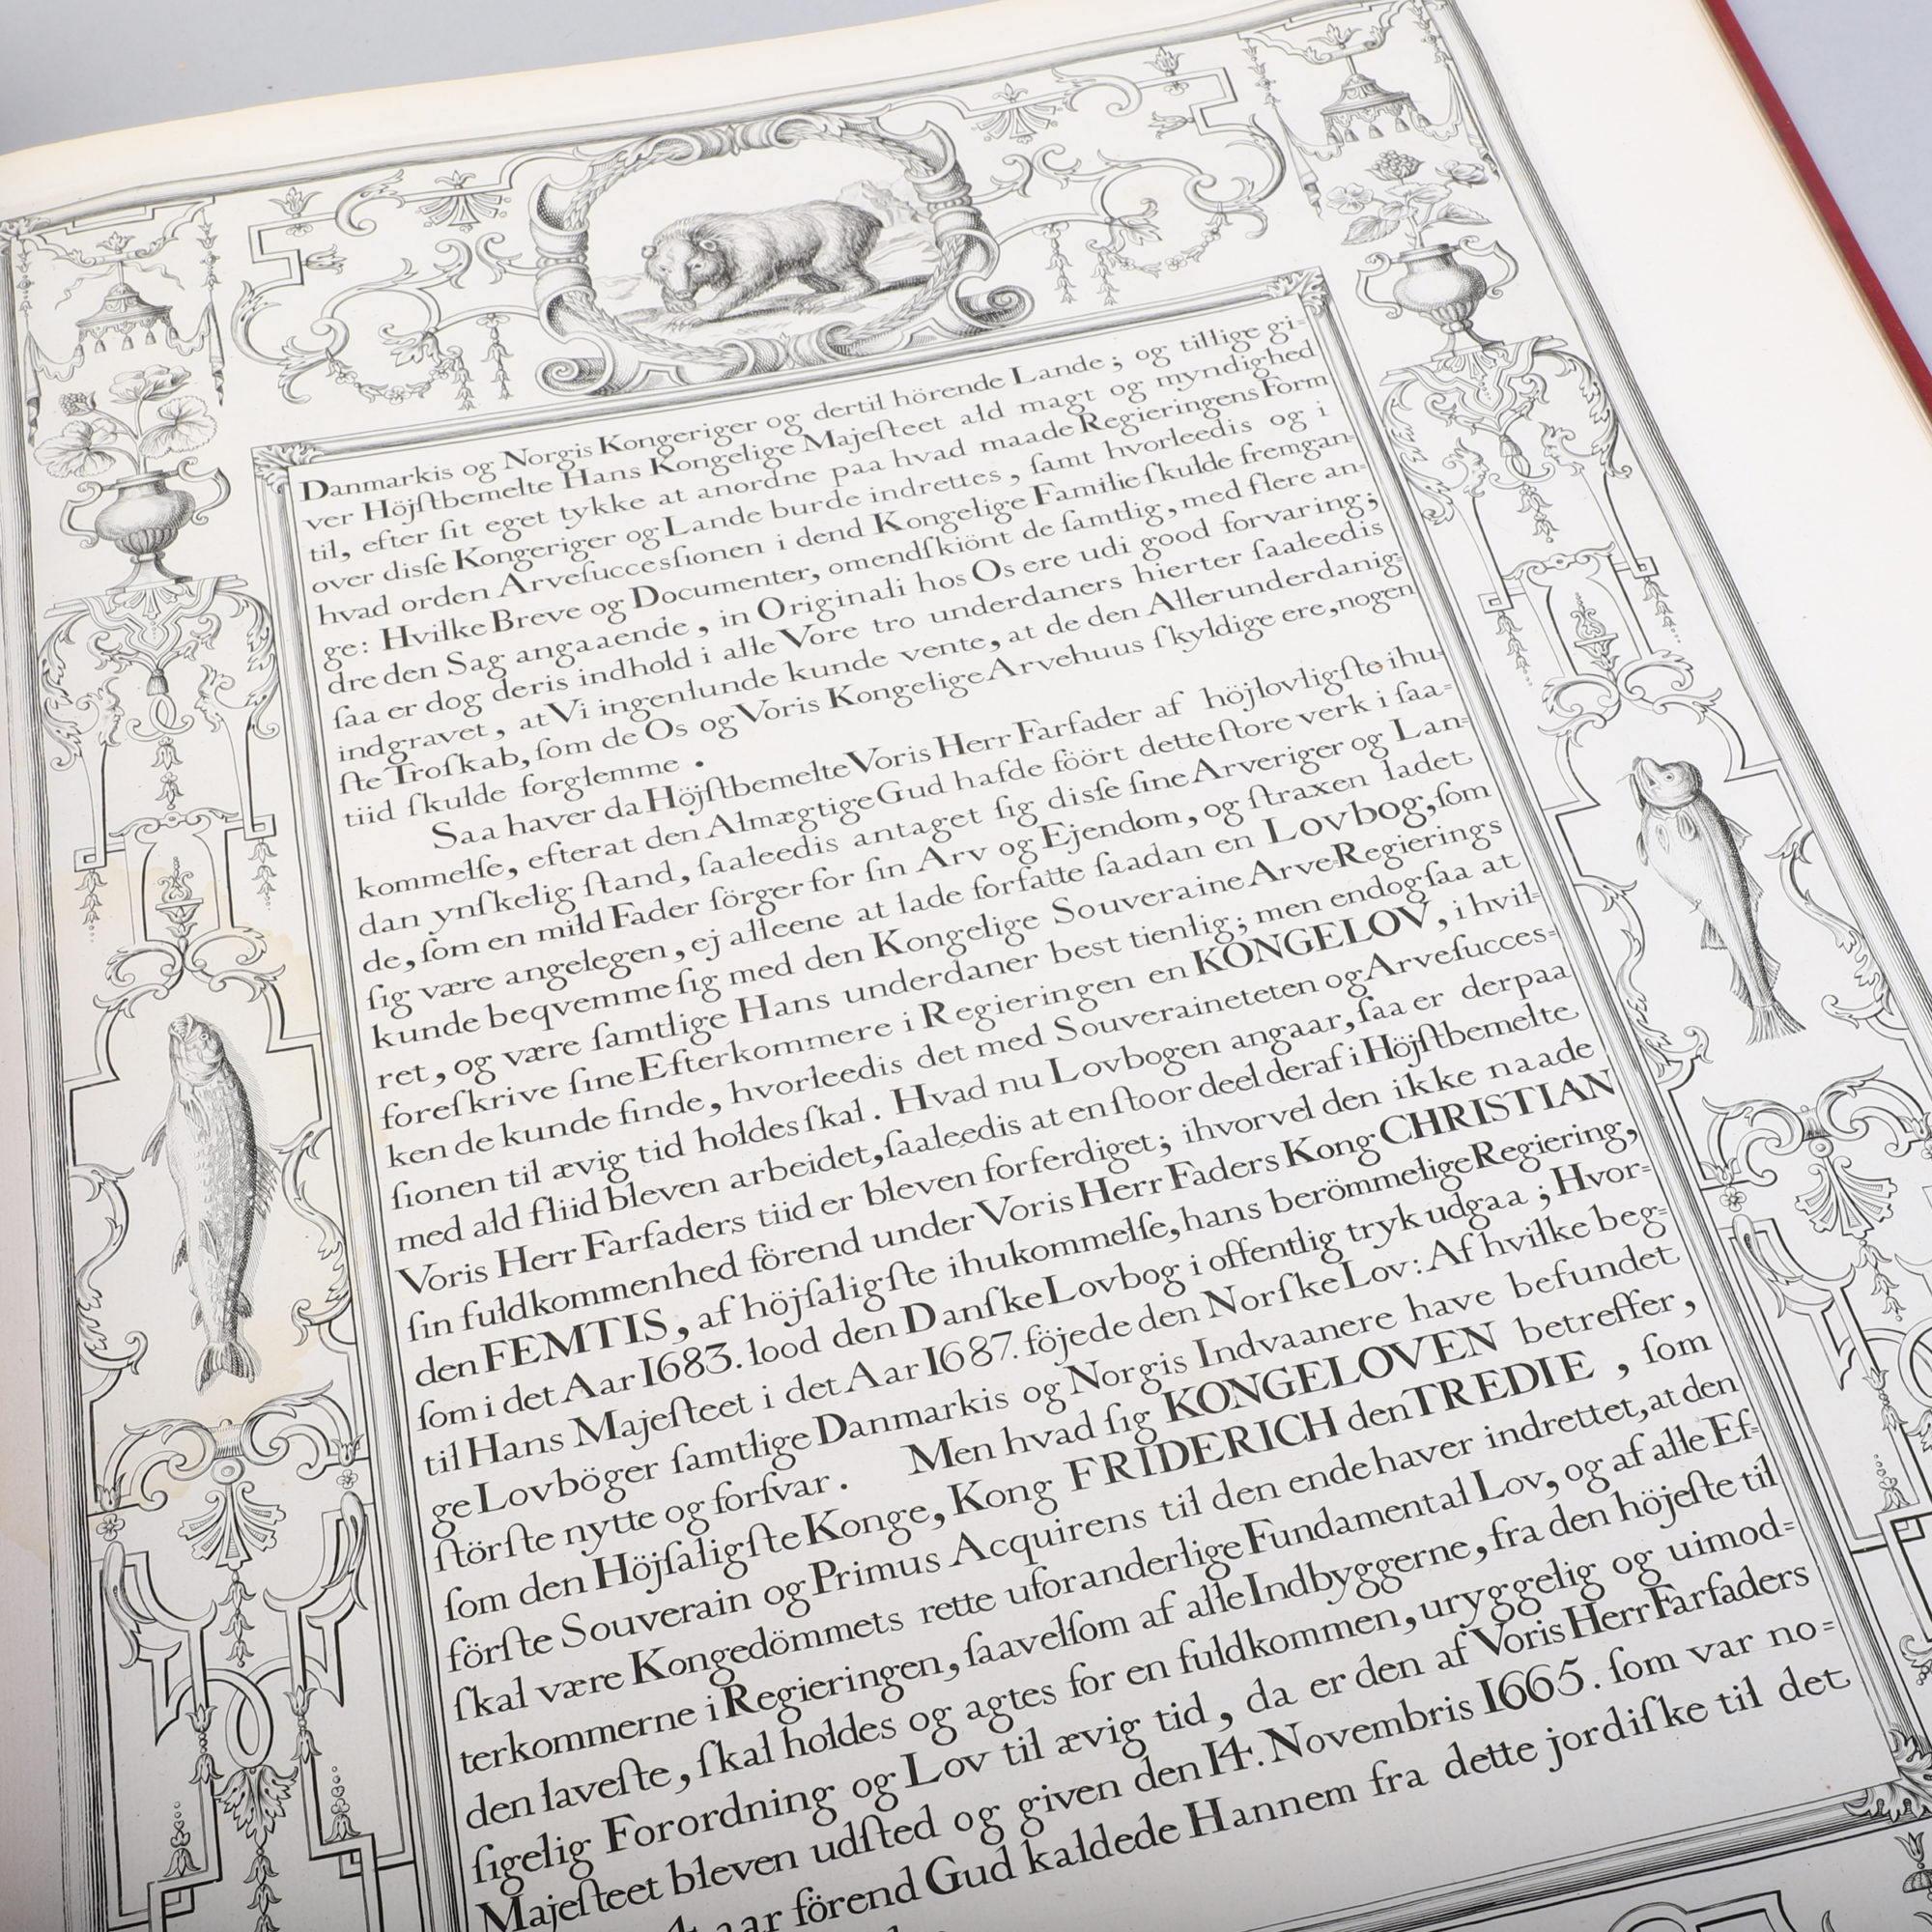 Danmarkis og Norgis Kongeriger og dertil hörende Lande; og tillige gi=
ver Höjſtbemelte Hans Kongelige Majeſteet ald magt og myndighed
til, efter ſit eget tykke at anordne paa hvad maade Regieringens Form
over disſe Kongeriger og Lande burde indrettes, ſamt hvorleedis og i
hvad orden Arveſucceſſionen i dend Kongelige Familie ſkulde fremgan=
ge: Hvilke Breve og Documenter, omendſkiönt de ſamtlig, med flere an=
dre den Sag angaaende, in Originali hos Os ere udi good forvaring;
ſaa er dog deris indhold i alle Vore tro underdaners hierter ſaaleedis
indgravet, at Vi ingenlunde kunde vente, at de den Allerunderdanig=
ſte Troſkab, ſom de Os og Voris Kongelige Arvehuus ſkyldige ere, nogen
tiid ſkulde forglemme.
Saa haver da Höjſtbemelte Voris Herr Farfader af höjlovligſte ihu=
kommelſe, efterat den Almægtige Gud hafde fört dette ſtore verk i ſaa=
dan ynſkelig ſtand, ſaaleedis antaget ſig disſe ſine Arveriger og Lan=
de, ſom en mild Fader ſörger for ſin Arv og Ejendom, og ſtraxen ladet
ſig være angelegen, ej alleene at lade forfatte ſaadan en Lovbog, ſom
kunde beqvemme ſig med den Kongelige Souveraine Arve-Regierings
ret, og være ſamtlige Hans underdaner best tienlig; men endog ſaa at
foreſkrive ſine Efterkommere i Regieringen en KONGELOV, i hvil=
ken de kunde finde, hvorleedis det med Souveraineteten og Arveſucces=
ſionen til ævig tid holdes ſkal. Hvad nu Lovbogen angaar, ſaa er derpaa
med ald fliid bleven arbeidet, ſaaleedis at en ſtoor deel deraf i Höjſtbemelte
Voris Herr Farfaders tiid er bleven forferdiget; ihvorvel den ikke naade
ſin fuldkommenhed förend under Voris Herr Faders Kong CHRISTIAN
den FEMTIS, af höjſaligſte ihukommelſe, hans berömmelige Regiering,
ſom i det Aar 1683. lood den Danſke Lovbog i offentlig tryk udgaa; Hvor=
til Hans Majeſteet i det Aar 1687. föjede den Norſke Lov: Af hvilke beg=
ge Lovböger ſamtlige Danmarkis og Norgis Indvaanere have befundet
ſtörſte nytte og forſvar. Men hvad ſig KONGELOVEN betreffer,
ſom den Höjſaligſte Konge, Kong FRIDERICH den TREDIE, ſom
förſte Souverain og Primus Acquirens til den ende haver indrettet, at den
ſkal være Kongedömmets rette uforanderlige Fundamental Lov, og af alle Ef=
terkommerne i Regieringen, ſaavelſom af alle Indbyggerne, fra den höjeſte til
den laveſte, ſkal holdes og agtes for en fuldkommen, uryggelig og uimod=
ſigelig Forordning og Lov til ævig tid, da er den af Voris Herr Farfaders
Majeſteet bleven udſted og given den 14. Novembris 1665. ſom var no=
aar förend Gud kaldede Hannem fra dette jordiſke til det